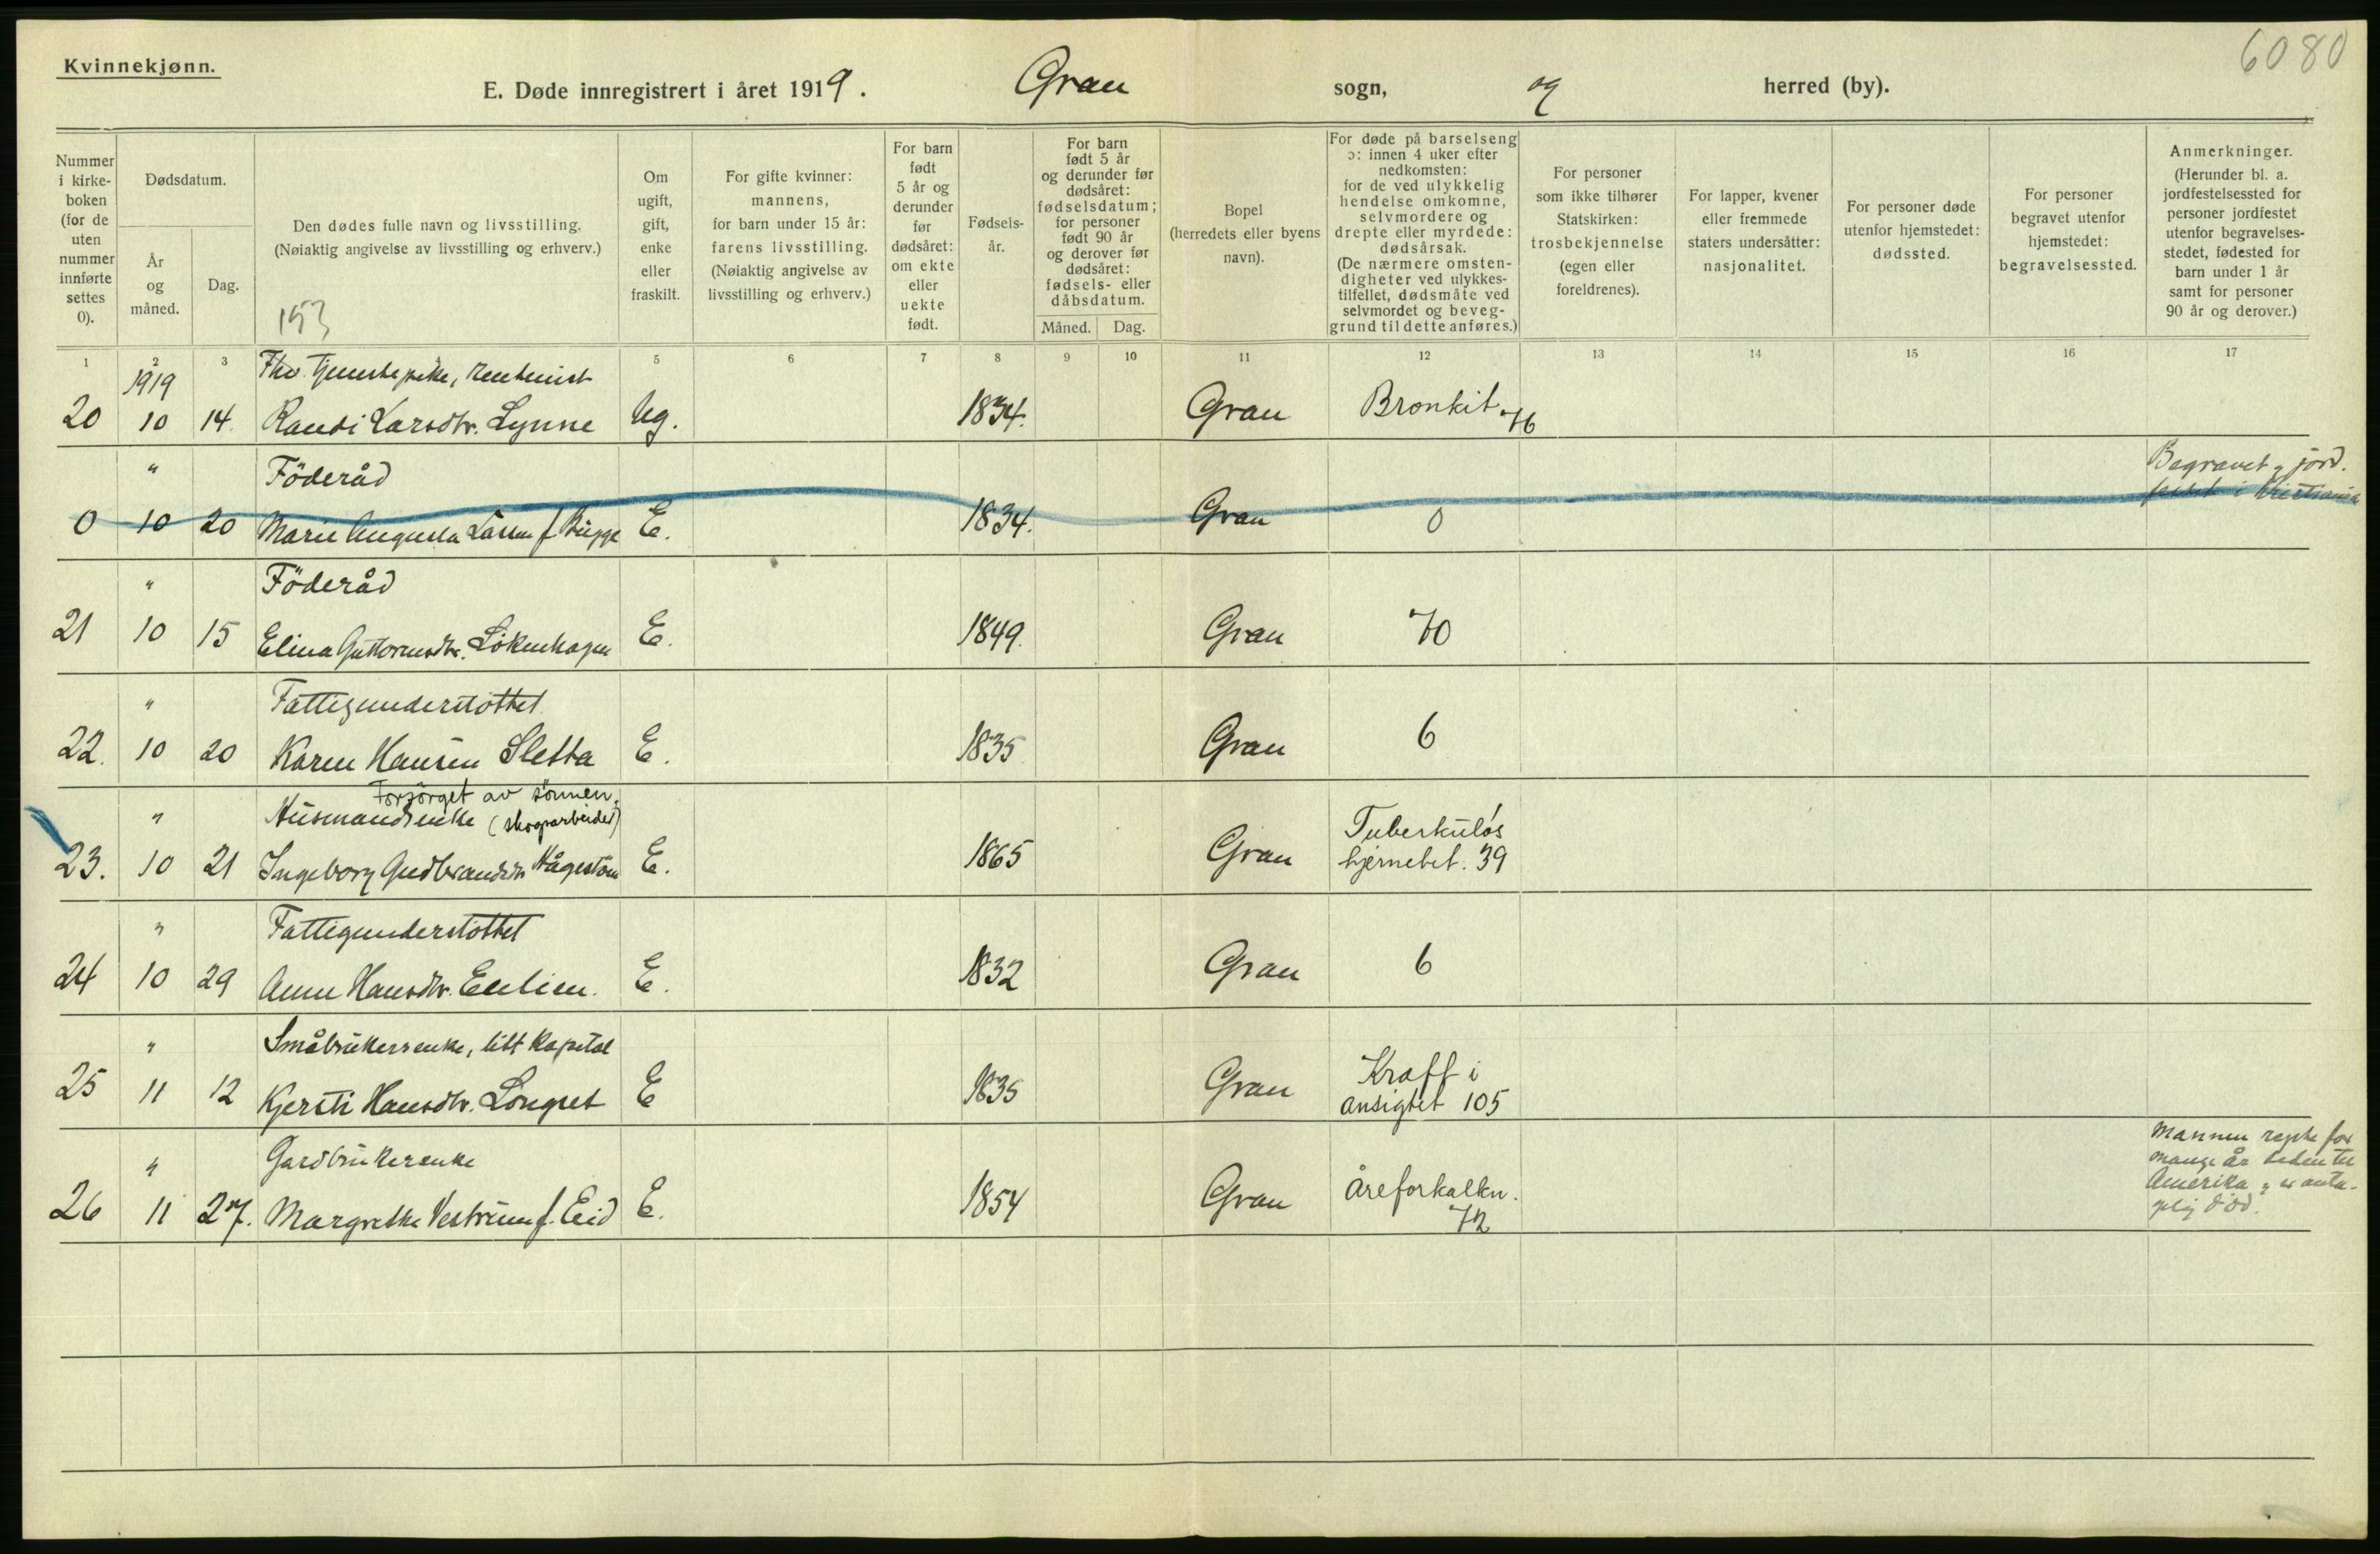 6080
Kvinnekjønn.
E. Døde innregistrert i året 1919. Gran sogn, og herred (by).
Nummer i kirke- boken (for de uten nummer innførte settes 0).
Dødsdatum.
År og måned.
Dag.
Den dødes fulle navn og livsstilling.
(Nøiaktig angivelse av livsstilling og erhverv.)
153
Om ugift, gift, enke eller fraskilt.
For gifte kvinner: mannens, for barn under 15 år: farens livsstilling. (Nøiaktig angivelse av livsstilling og erhverv.)
For barn født 5 år og derunder før dødsåret: om ekte eller uekte født.
Fødsels- år.
For barn født 5 år og derunder før dødsåret: fødselsdatum; for personer født 90 år og derover før dødsåret: fødsels- eller dåbsdatum.
Måned.
Dag.
Bopel (herredets eller byens navn).
For døde på barselseng ɔ: innen 4 uker efter nedkomsten: for de ved ulykkelig hendelse omkomne, selvmordere og drepte eller myrdede: dødsårsak. (De nærmere omsten- digheter ved ulykkes- tilfellet, dødsmåte ved selvmordet og beveg- grund til dette anføres.)
For personer som ikke tilhører Statskirken: trosbekjennelse (egen eller foreldrenes).
For lapper, kvener eller fremmede staters undersåtter: nasjonalitet.
For personer døde utenfor hjemstedet: dødssted.
For personer begravet utenfor hjemstedet: begravelsessted.
Anmerkninger. (Herunder bl. a. jordfestelsessted for personer jordfestet utenfor begravelses- stedet, fødested for barn under 1 år samt for personer 90 år og derover.)
1 2 3 5 6 7 8 9 10 11 12 13 14 15 16 17
1919 Fhv. tjenestepike, rentenist
20 10 14. Randi Larsdtr. Lynne Ug. 1834. Gran Bronkit 76
" Föderåd Begravet og jord-
0 10 20 Marie Augusta Larsen f. Bugge E. 1834. Gran 0 festet i Kristiania
" Föderåd
21 10 15 Elina Guttormsdtr. Lökenhagen E. 1849. Gran 70
" Fattigunderstöttet
22. 10 20 Karen Hansen Sletta E. 1835 Gran 6
Forsörget av sönnen.
" Husmandsenke (skogsarbeider) Tuberkulös
23. 10 21 Ingeborg Gudbrandsdtr. E. 1865 Gran hjernebet. 39
" Fattigunderstöttet
24 10 29 Anne Hansdtr. E. 1832 Gran 6
" Småbrukersenke, litt kapital Kraft i
25 11 12 Kjersti Hansdtr. Longset E 1835 Gran ansigtet 105
" Gardbrukerenke Mannen reiste for
mange år siden til
26 11 27. Margrethe Vestrum f. Eid E. 1854 Gran Åreforkalkn. 72 Amerika, og er anta-
gelig död.